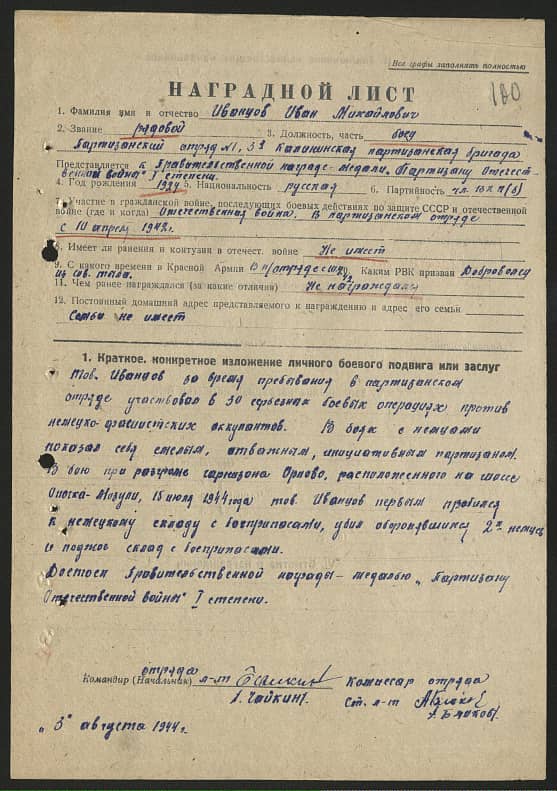 Все графы заполнять полностью
100
НАГРАДНОЙ ЛИСТ
1. Фамилия имя и отчество Иванцов Иван Михайлович
2. Звание рядовой 3. Должность, часть боец
Партизанский отряд №1, 5й Калининская партизанская бригада
Представляется к Правительственной награде - медали "Партизану Отечест-
венной война" I степени.
4. Год рождения 1924 5. Национальность русский 6. Партийность чл. ВКП(б)
7. Участие в гражданской войне, последующих боевых действиях по защите СССР и отечественной
войне (где и когда) Отечественная война. В партизанском отряде
с 10 апреля 1942г.
8. Имеет ли ранения и контузии в отечест. войне Не имеет
9. С какого времени в Красной Армии В п/отряде с 10. Каким РВК призван Доброволец
из сов. тыла.
11. Чем ранее награждался (за какие отличия) Не награждался
12. Постоянный домашний адрес представляемого к награждению и адрес его семьи
Семьи не имеет
1. Краткое, конкретное изложение личного боевого подвига или заслуг
Тов. Иванцов за время пребывания в партизанском
отряде участвовал в 30 серьезных боевых операциях против
немецко-фашистских оккупантов. В боях с немцами
показал себя смелым, отважным, инициативным партизаном.
В бою при разгроме гарнизона Орлово, расположенного на шоссе
Опочка-Мозули, 15 июля 1944 года тов. Иванцов первым пробился
к немецкому складу с боеприпасами, убил оборонявшихся 2х немцев
и поджог склад с боеприпасами.
Достоен Правительственной награды - медалью "Партизану
Отечественной войны" I степени.
отряда
Командир (Начальник) л-т
Комиссар отряда
/. Чайкин/.
Ст. л-т
"3" августа 1944г.